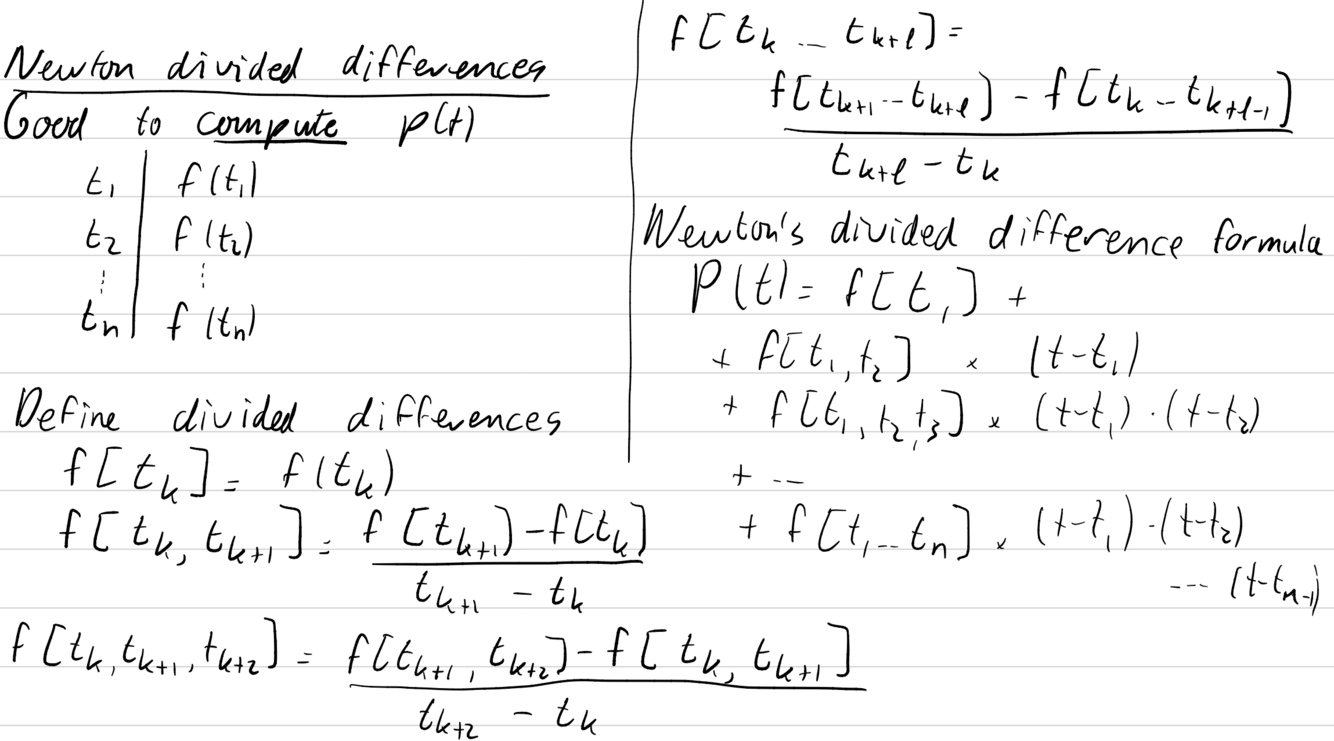 Newton divided differences
Good to compute p(t)
t₁ | f(t₁)
t₂ | f(t₂)
⋮ ⋮
tₙ | f(tₙ)
Define divided differences
f[t_k] = f(t_k)
f[t_k, t_{k+1}] = (f[t_{k+1}] - f[t_k]) / (t_{k+1} - t_k)
f[t_k, t_{k+1}, t_{k+2}] = (f[t_{k+1}, t_{k+2}] - f[t_k, t_{k+1}]) / (t_{k+2} - t_k)
f[t_k ... t_{k+l}] =
(f[t_{k+1} ... t_{k+l}] - f[t_k ... t_{k+l-1}]) / (t_{k+l} - t_k)
Newton's divided difference formula
P(t) = f[t₁] +
+ f[t₁, t₂] × (t-t₁)
+ f[t₁, t₂, t₃] × (t-t₁) · (t-t₂)
+ ...
+ f[t₁ ... tₙ] × (t-t₁) · (t-t₂)
... (t-t_{n-1})